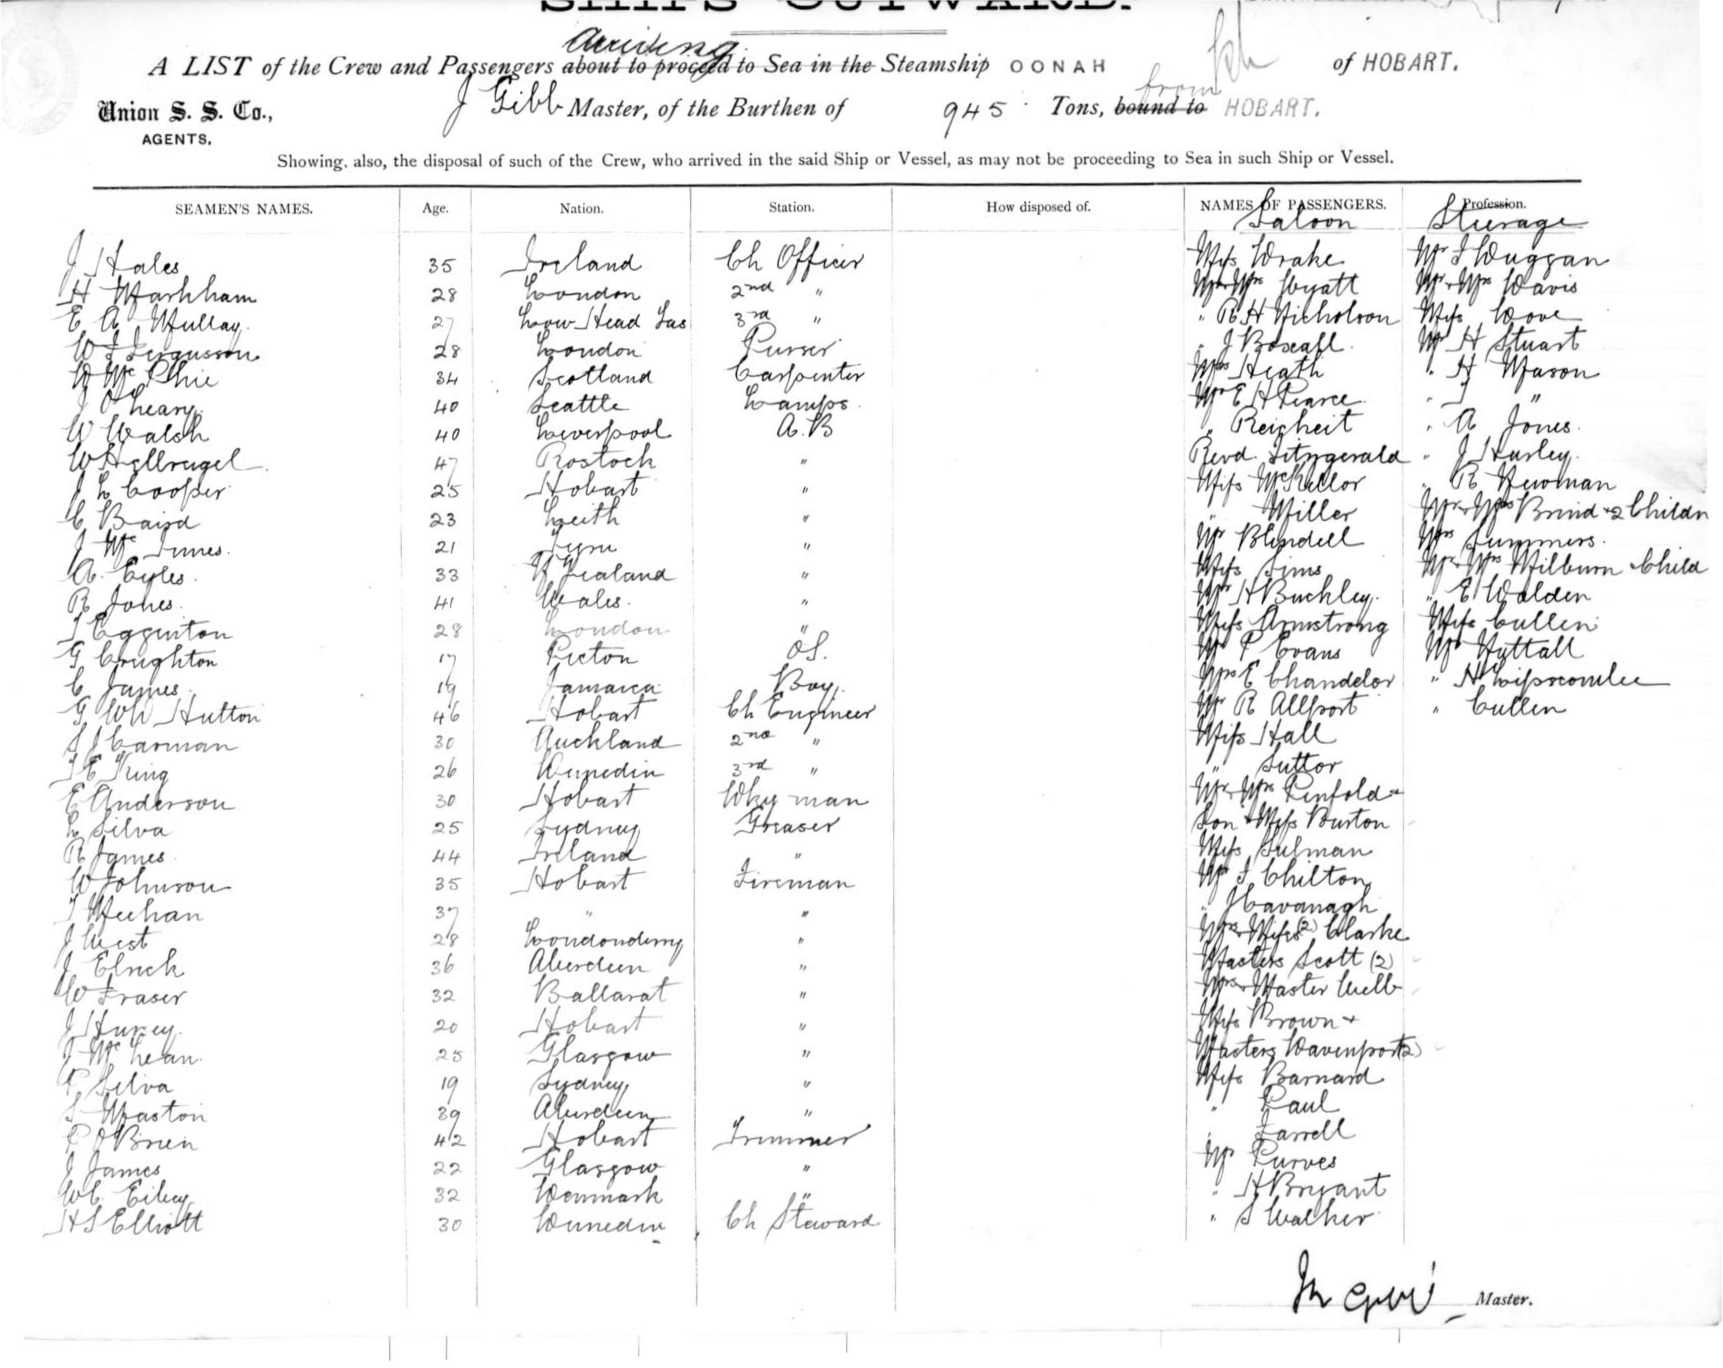 SHIPS OUTWARD.
arriving
A LIST of the Crew and Passengers about to proceed to Sea in the Steamship OONAH of HOBART.
from
Union S. S. Co., J Gibb Master, of the Burthen of 945 Tons, bound to HOBART.
AGENTS.
Showing, also, the disposal of such of the Crew, who arrived in the said Ship or Vessel, as may not be proceeding to Sea in such Ship or Vessel.
SEAMEN'S NAMES. Age. Nation. Station. How disposed of. NAMES OF PASSENGERS. Profession.
Saloon Steerage
J Hales 35 Ireland Ch Officer Miss Drake Mr J Duggan
H Markham 28 London 2nd " Mr & Mrs Wyatt Mr & Mrs Davis
E A Mullay 27 Low Head Tas 3rd " " R H Nicholson Miss Dove
W J Fergusson 28 London Purser " J Boxall Mr H Stuart
W Mc Phie 34 Scotland Carpenter Mrs Heath " H Mason
J O'Leary 40 Seattle Lamps Mr E H Pearce " J "
W Walsh 40 Liverpool A.B " Reicheit " A Jones
W Hellrugel 47 Rostock " Revd Fitzgerald " J Hurley
J L Cooper 25 Hobart " Miss McKellor " R Newman
C Baird 23 Leith " " Miller Mr & Mrs Brind & 2 Childn
J Mc Innes 21 Tyne " Mr Blundell Mrs Summers
A. Eyles 33 N Zealand " Miss Sims Mr & Mrs Milburn & Child
R Jones 41 Wales " Mr H Buckley " E Walden
J Egginton 28 London " Miss Armstrong Miss Cullen
G Crughton 17 Picton O.S. Mr P Evans Mr Nuttall
C James 19 Jamaica Boy Mrs E Chandelor " H Lipscombe
G Wh Hutton 46 Hobart Ch Engineer Mr R Allport " Cullen
S J Carman 30 Auckland 2nd " Miss Hall
J E King 26 Dunedin 3rd " " Suttor
E Anderson 30 Hobart Dky man Mr & Mrs Penfold &
L Silva 25 Sydney Greaser Son & Miss Burton
R James 44 Ireland " Miss Sulman
W Johnson 35 Hobart Fireman Mr J Chilton
J Meehan 37 " " " J Cavanagh
J West 28 Londonderry " Mrs & Misses (2) Clarke
J Elrick 36 Aberdeen " Masters Scott (2)
W Fraser 32 Ballarat " Mrs & Master Webb
J Hurley 20 Hobart " Miss Brown &
J Mc Lean 25 Glasgow " Masters Davenport (2)
P Silva 19 Sydney " Miss Barnard
S Maston 39 Aberdeen " " Paul
P O'Brien 42 Hobart Trimmer " Farrell
J James 22 Glasgow " Mr Purves
W C Eiby 32 Denmark " " H Bryant
H S Elliott 30 Dunedin Ch Steward " S Walker
Master.